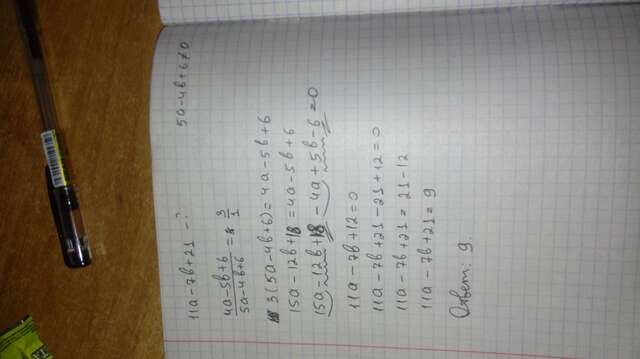 11a - 7b + 21 - ?
5a - 4b + 6 ≠ 0
4a - 5b + 6 / 5a - 4b + 6 = 3/1
3(5a - 4b + 6) = 4a - 5b + 6
15a - 12b + 18 = 4a - 5b + 6
15a - 12b + 18 - 4a + 5b - 6 = 0
11a - 7b + 12 = 0
11a - 7b + 21 - 21 + 12 = 0
11a - 7b + 21 = 21 - 12
11a - 7b + 21 = 9
Ответ: 9.